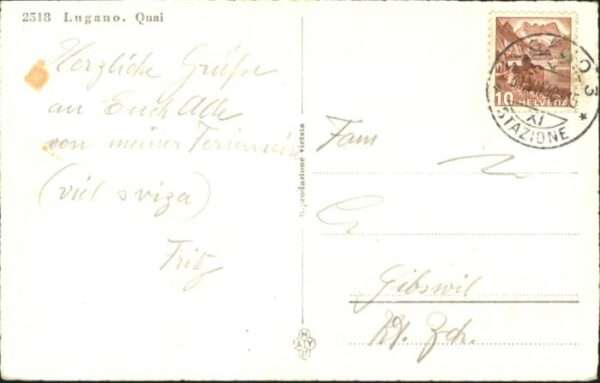 2518 Lugano. Quai
Herzliche Grüsse
an Euch Alle
von meiner
(viel sviza)
Fritz
Fam
Gibswil
Kt. Zch.
Reproduzione vietata
10 HELVETIA
XI
STAZIONE
3